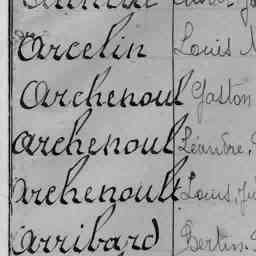 Arcelin Louis
Archenoul Gaston
Archenoul Léandre,
Archenoult Louis, Ju
Arribard Bertin.